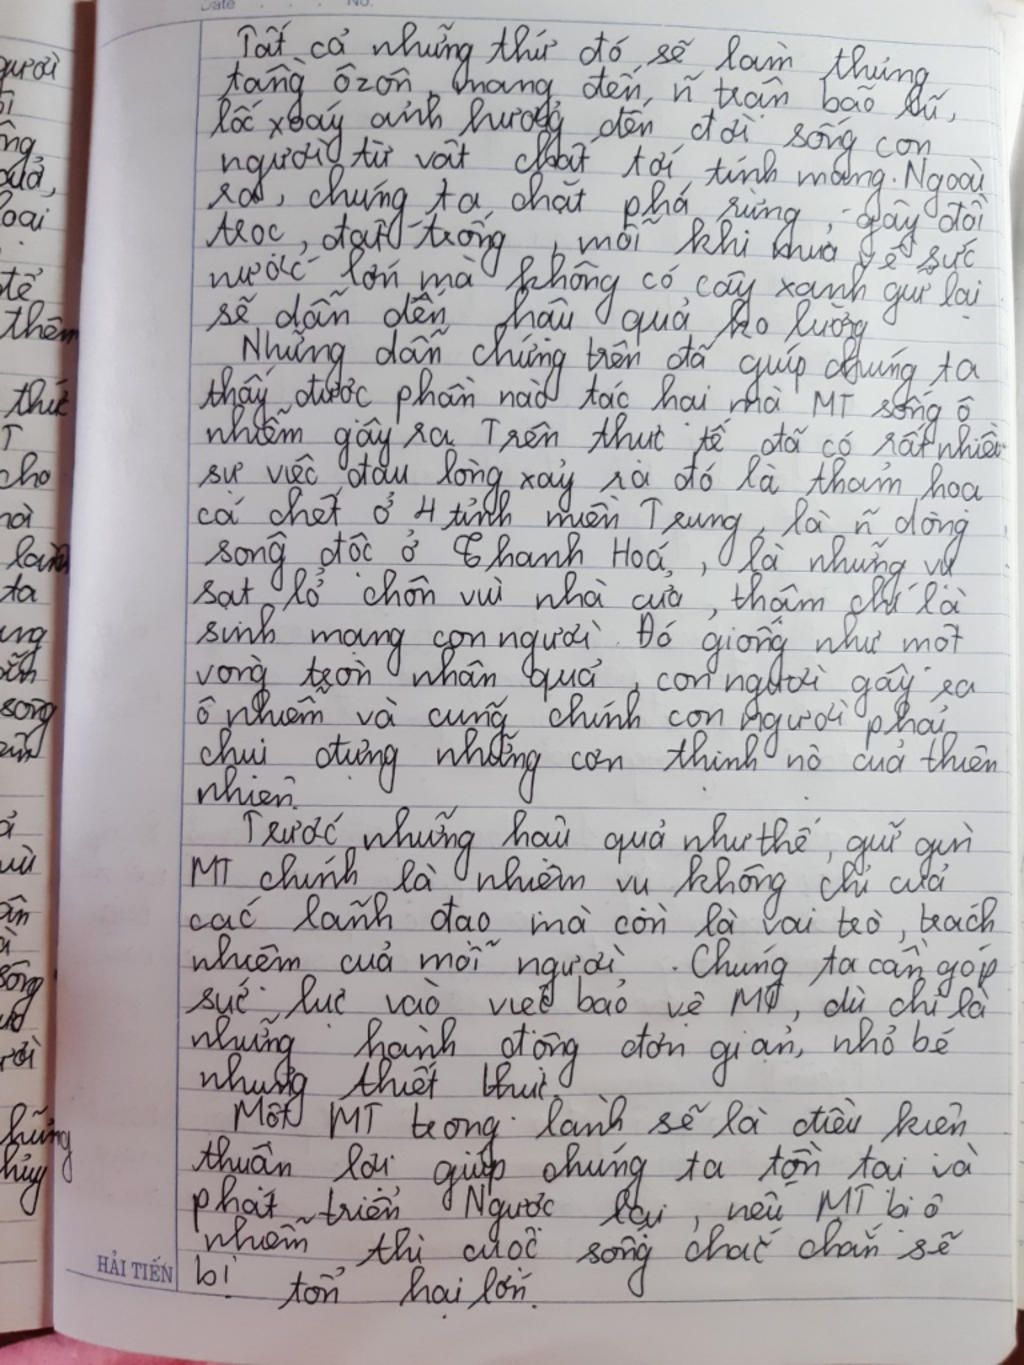 Date No.
Tất cả những thứ đó sẽ làm thủng
tầng ôzôn, mang đến ñ trận bão lũ,
lốc xoáy ảnh hưởng đến đời sống con
người từ vật chất tới tính mạng. Ngoài
ra, chúng ta chặt phá rừng, gây đồi
trọc, đất trống, mỗi khi mưa về sức
nước lớn mà không có cây xanh giữ lại
sẽ dẫn đến hậu quả ko lường
Những dẫn chứng trên đã giúp chúng ta
thấy được phần nào tác hại mà MT sống ô
nhiễm gây ra. Trên thực tế đã có rất nhiều
sự việc đau lòng xảy ra đó là thảm họa
cá chết ở 4 tỉnh miền Trung, là ñ dòng
sông độc ở Thanh Hoá, là những vụ
sạt lở chôn vùi nhà cửa, thậm chí là
sinh mạng con người. Đó giống như một
vòng tròn nhân quả, con người gây ra
ô nhiễm và cũng chính con người phải
chịu đựng những cơn thịnh nộ của thiên
nhiên.
Trước những hậu quả như thế, giữ gìn
MT chính là nhiệm vụ không chỉ của
các lãnh đạo mà còn là vai trò, trách
nhiệm của mỗi người. Chúng ta cần góp
sức lực vào việc bảo vệ MT, dù chỉ là
những hành động đơn giản, nhỏ bé
nhưng thiết thực.
Một MT trong lành sẽ là điều kiện
thuận lợi giúp chúng ta tồn tại và
phát triển. Ngược lại, nếu MT bị ô
nhiễm thì cuộc sống chắc chắn sẽ
bị tổn hại lớn.
HẢI TIẾN